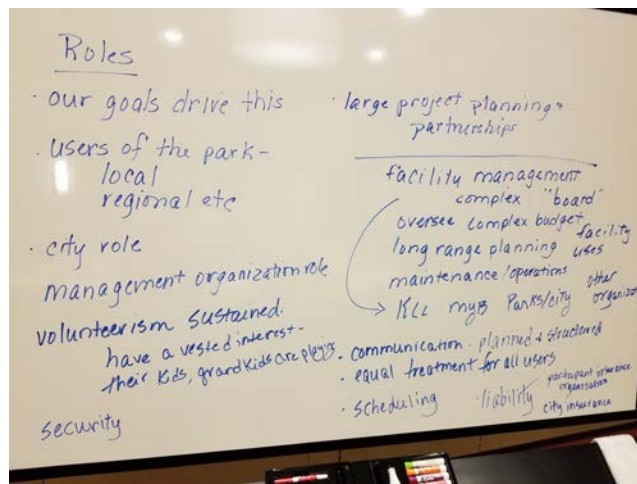 Roles
· our goals drive this
· users of the park -
local
regional etc
· city role
management organization role
volunteerism sustained.
have a vested interest -
their kids, grandkids are playing
security
· large project planning +
partnerships
facility management
complex "board"
oversee complex budget
long range planning facility uses
maintenance/operations
KLL myB Parks/city other organizat
· communication - planned & structured
· equal treatment for all users
· scheduling
· liability
participant insurance
organization
city insurance